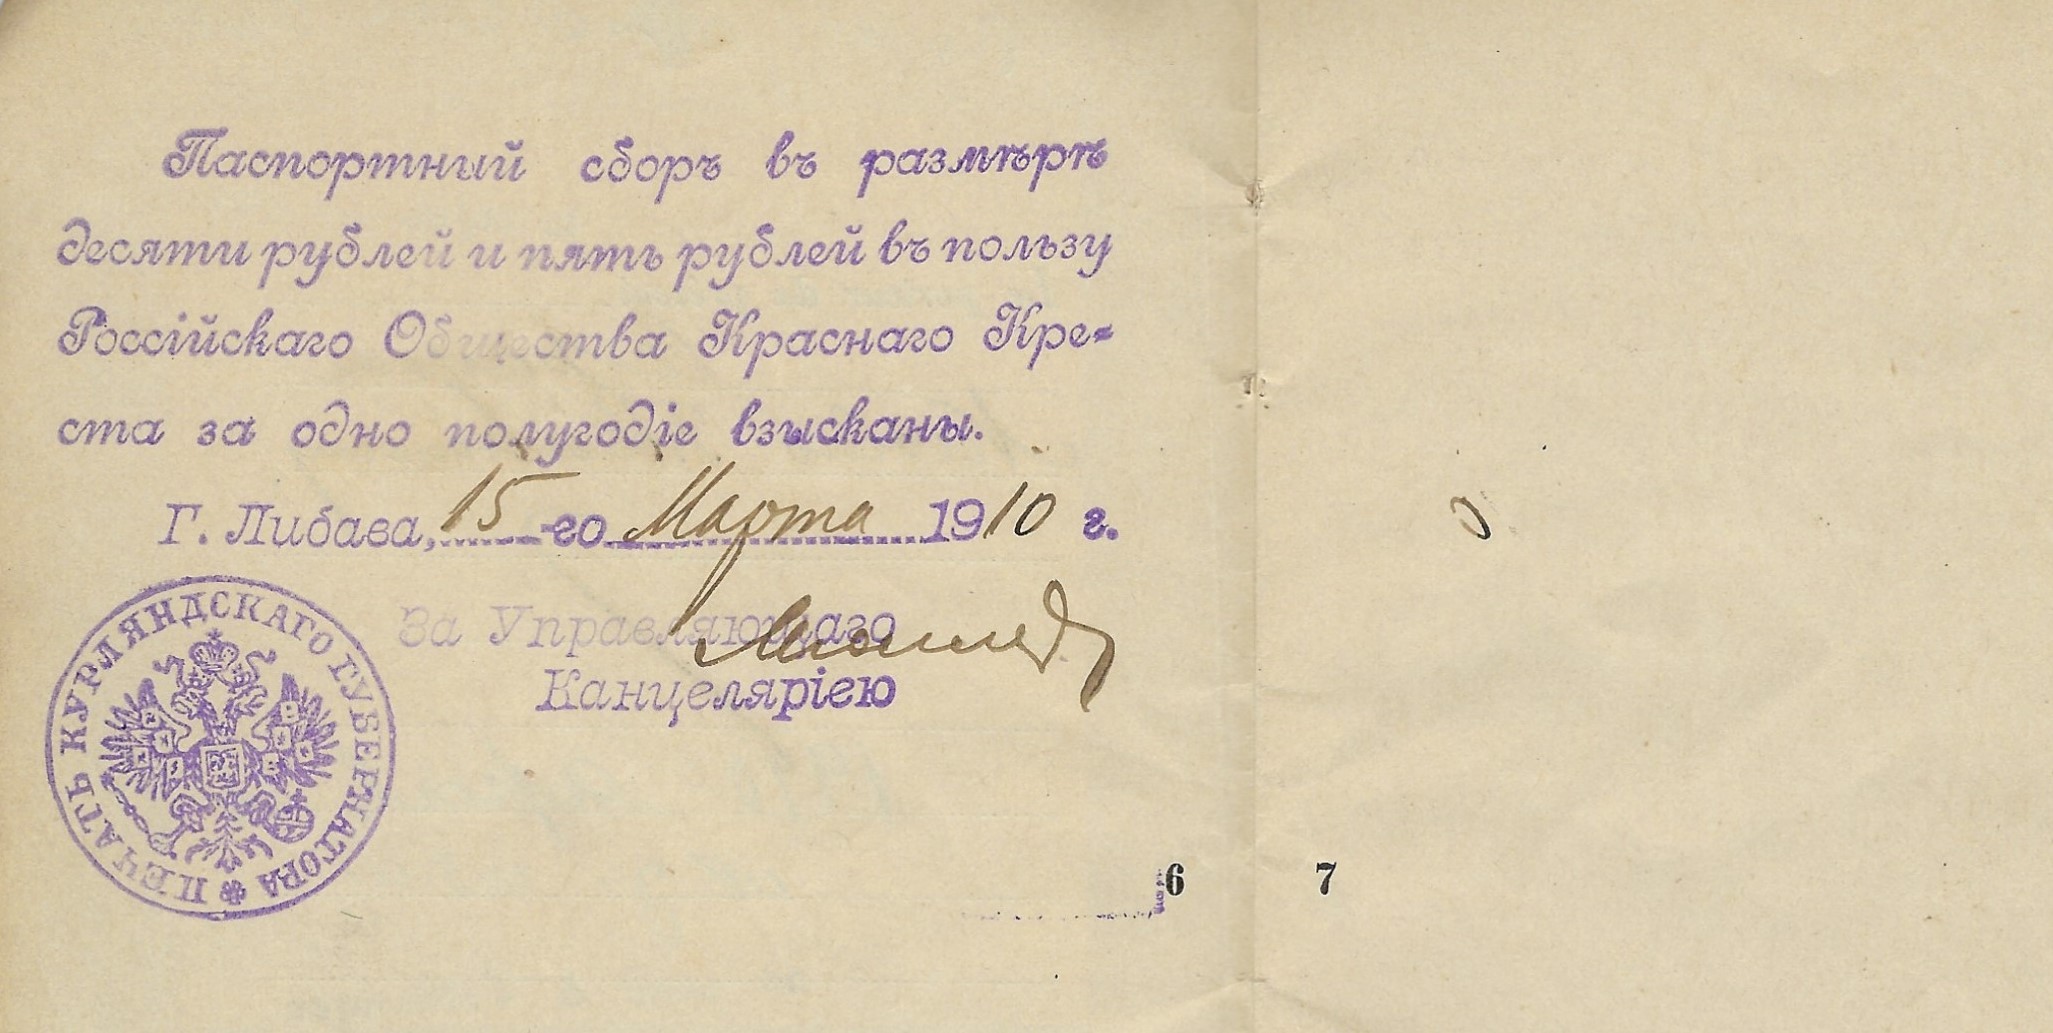 Паспортный сборъ въ размѣрѣ
десяти рублей и пять рублей въ пользу
Россійскаго Общества Краснаго Кре-
ста за одно полугодіе взысканы.
Г. Либава, 15-го Марта 1910 г.
За Управляющаго
Канцеляріею
ПЕЧАТЬ КУРЛЯНДСКАГО ГУБЕРНАТОРА
6 7